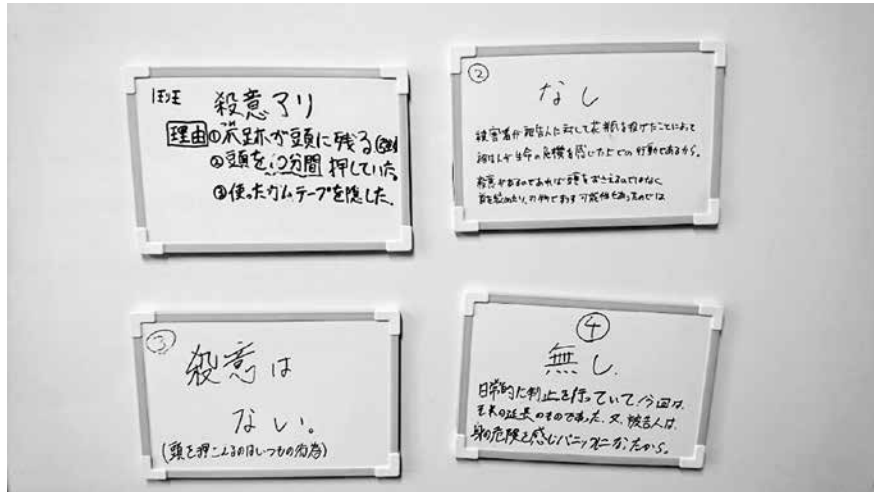 1班 殺意アリ
理由 ①爪跡が頭に残る
②頭を10分間押していた。
③使ったガムテープを隠した。
②
なし
被害者が被告人に対して花瓶を投げたことによって
被告人が生命の危機を感じた上での行動であるから。
殺意があるのであれば頭をおさえるのではなく
首を絞めたり、刃物でおす可能性もあったのでは
③
殺意は
ない。
(頭を押さえるのはいつもの行為)
④
無し.
日常的に制止を行っていて、今回は、
その延長のものであった。又、被告人は、
身の危険を感じパニックになったから。